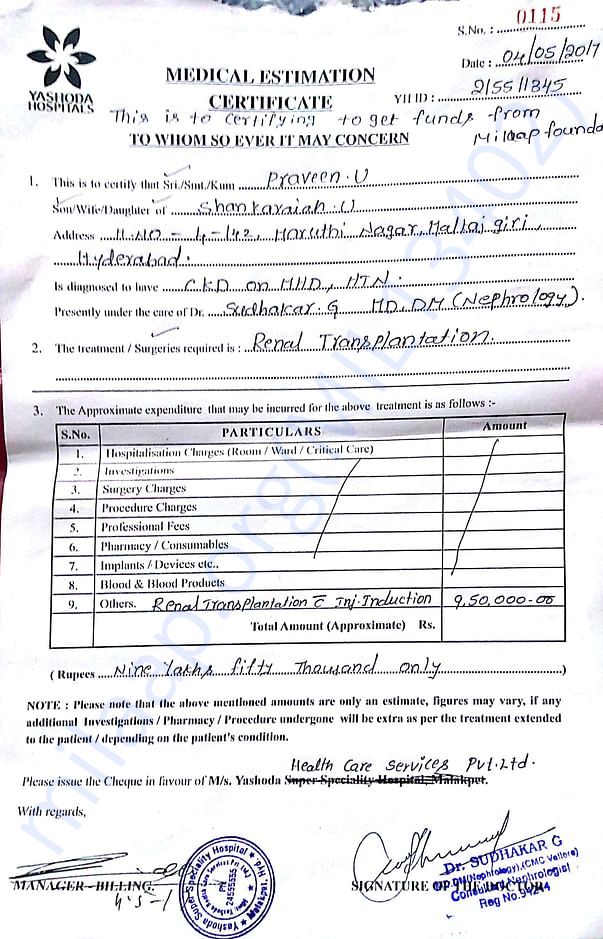 S.No. : 0115
Date : 04/05/2017
YASHODA
HOSPITALS
MEDICAL ESTIMATION
CERTIFICATE
YH ID : 215511845
This is to certifying to get funds from
Milaap founda
TO WHOM SO EVER IT MAY CONCERN
1. This is to certify that Sri./Smt./Kum Praveen.U
Son/Wife/Daughter of Shankaraiah.U
Address H.NO - 4-142, Maruthi Nagar, Mallajgiri,
Hyderabad.
Is diagnosed to have CKD on MHD, HTN.
Presently under the care of Dr. Sudhakar.G MD.DM (Nephrology).
2. The treatment / Surgeries required is : Renal Transplantation.
3. The Approximate expenditure that may be incurred for the above treatment is as follows :-
S.No. PARTICULARS Amount
1. Hospitalisation Charges (Room / Ward / Critical Care)
2. Investigations
3. Surgery Charges
4. Procedure Charges
5. Professional Fees
6. Pharmacy / Consumables
7. Implants / Devices etc.,
8. Blood & Blood Products
9. Others. Renal Transplantation c̄ Inj. Induction 9,50,000-00
Total Amount (Approximate) Rs.
( Rupees Nine lakhs fifty Thousand only )
NOTE : Please note that the above mentioned amounts are only an estimate, figures may vary, if any
additional Investigations / Pharmacy / Procedure undergone will be extra as per the treatment extended
to the patient / depending on the patient's condition.
Health Care Services Pvt.Ltd.
Please issue the Cheque in favour of M/s. Yashoda Super Speciality Hospital, Malakpet.
With regards,
MANAGER - BILLING.
Yashoda Super Speciality Hospital
PH: 24555555
Malakpet
SIGNATURE OF THE DOCTOR
Dr. SUDHAKAR G
MD,DM(Nephrology),(CMC Vellore)
Consultant Nephrologist
Reg No.54244